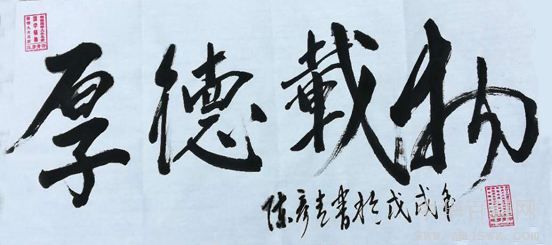 厚德載物
陈彦青書於戊戌年